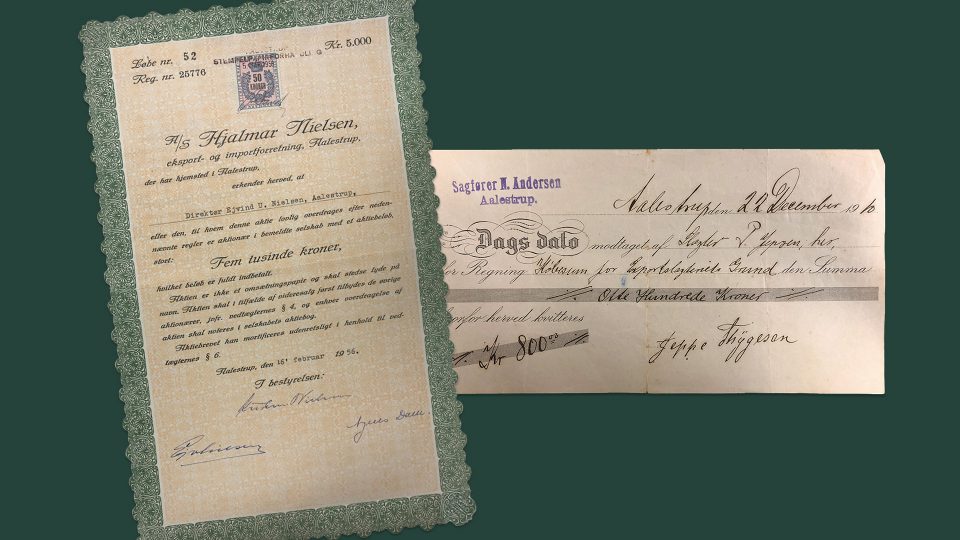 Løbe nr. 52
Kr. 5.000
Reg. nr. 25776
50
KRONER
A/S Hjalmar Nielsen,
eksport- og importforretning, Aalestrup,
der har hjemsted i Aalestrup,
erkender herved, at
Direktør Ejvind U. Nielsen, Aalestrup,
eller den, til hvem denne aktie lovlig overdrages efter neden-
nævnte regler er aktionær i bemeldte selskab med et aktiebeløb,
stort:
Fem tusinde kroner,
hvilket beløb er fuldt indbetalt.
Aktien er ikke et omsætningspapir og skal stedse lyde på
navn. Aktien skal i tilfælde af videresalg først tilbydes de øvrige
aktionærer, jofr. vedtægternes § 4, og enhver overdragelse af
aktien skal noteres i selskabets aktiebog.
Aktiebrevet kan mortificeres udenretsligt i henhold til ved-
tægternes § 6.
Aalestrup, den 15' februar 1956.
I bestyrelsen:
Sagfører N. Andersen
Aalestrup.
Aalestrup den 22 December 19
Dags dato modtaget af P. Jepsen, her,
for Regning Købesum for Exportslagteriets Grund den Summa
Otte Hundrede Kroner
hvorfor herved kvitteres
Kr 800 00
Jeppe Thygesen